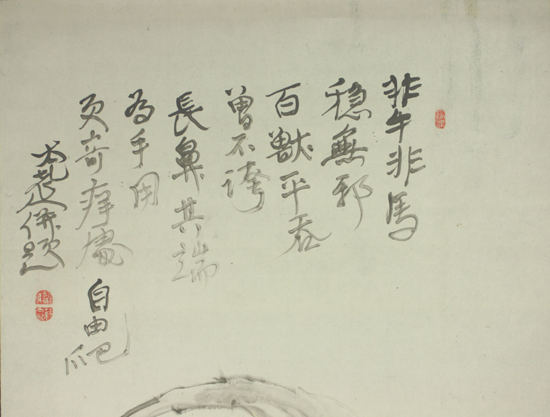 非牛非馬
穏無邪
百獣平
曾不誇
長鼻其端
為手用
更奇痒處自由爬
併題